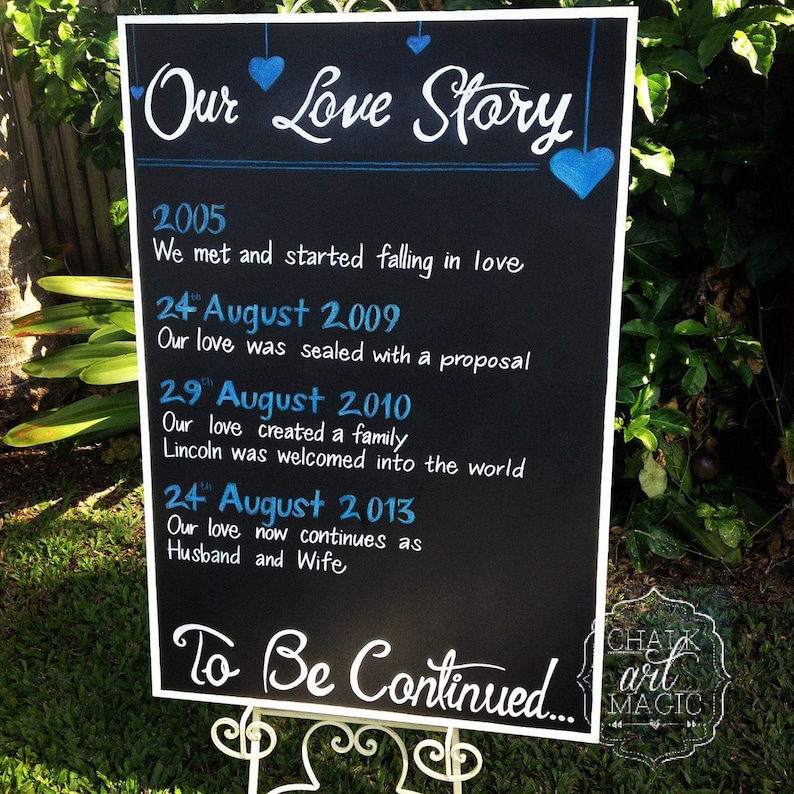 Our Love Story
2005
We met and started falling in love
24th August 2009
Our love was sealed with a proposal
29th August 2010
Our love created a family
Lincoln was welcomed into the world
24th August 2013
Our love now continues as
Husband and Wife
To Be Continued...
CHALK
art
MAGIC